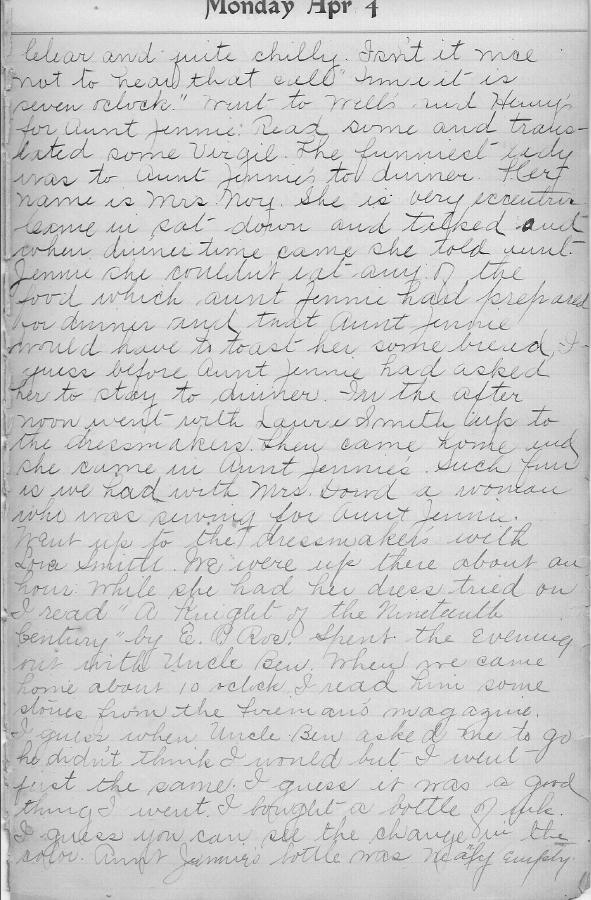 Monday Apr 4
Clear and quite chilly. Isn't it nice
not to hear that call "Ime it is
seven oclock." Went to Will's and Henry's
for Aunt Jennie. Read some and trans-
lated some Virgil. The funniest lady
was to Aunt Jennie's to dinner. Her
name is Mrs. Noy. She is very eccentric
Came in sat down and talked and
when dinner time came she told aunt
Jennie she couldn't eat any of the
food which aunt Jennie had prepared
for dinner and that Aunt Jennie
would have to toast her some bread. I
guess before Aunt Jennie had asked
her to stay to dinner. In the after
noon went with Smith up to
the dressmakers. Then came home and
she came in Aunt Jennies. Such fun
as we had with Mrs. Dowd a woman
who was sewing for Aunt Jennie.
Went up to the dressmakers with
Smith. We were up there about an
hour. While she had her dress tried on
I read "A Knight of the Nineteenth
Century" by E. P. Roe. Spent the Evening
out with Uncle Ben. When we came
home about 10 oclock I read him some
stories from the fireman's magazine.
I guess when Uncle Ben asked me to go
he didn't think I would but I went
just the same. I guess it was a good
thing I went. I bought a bottle of ink.
I guess you can see the change in the
color. Aunt Jennie's bottle was nealy empty.